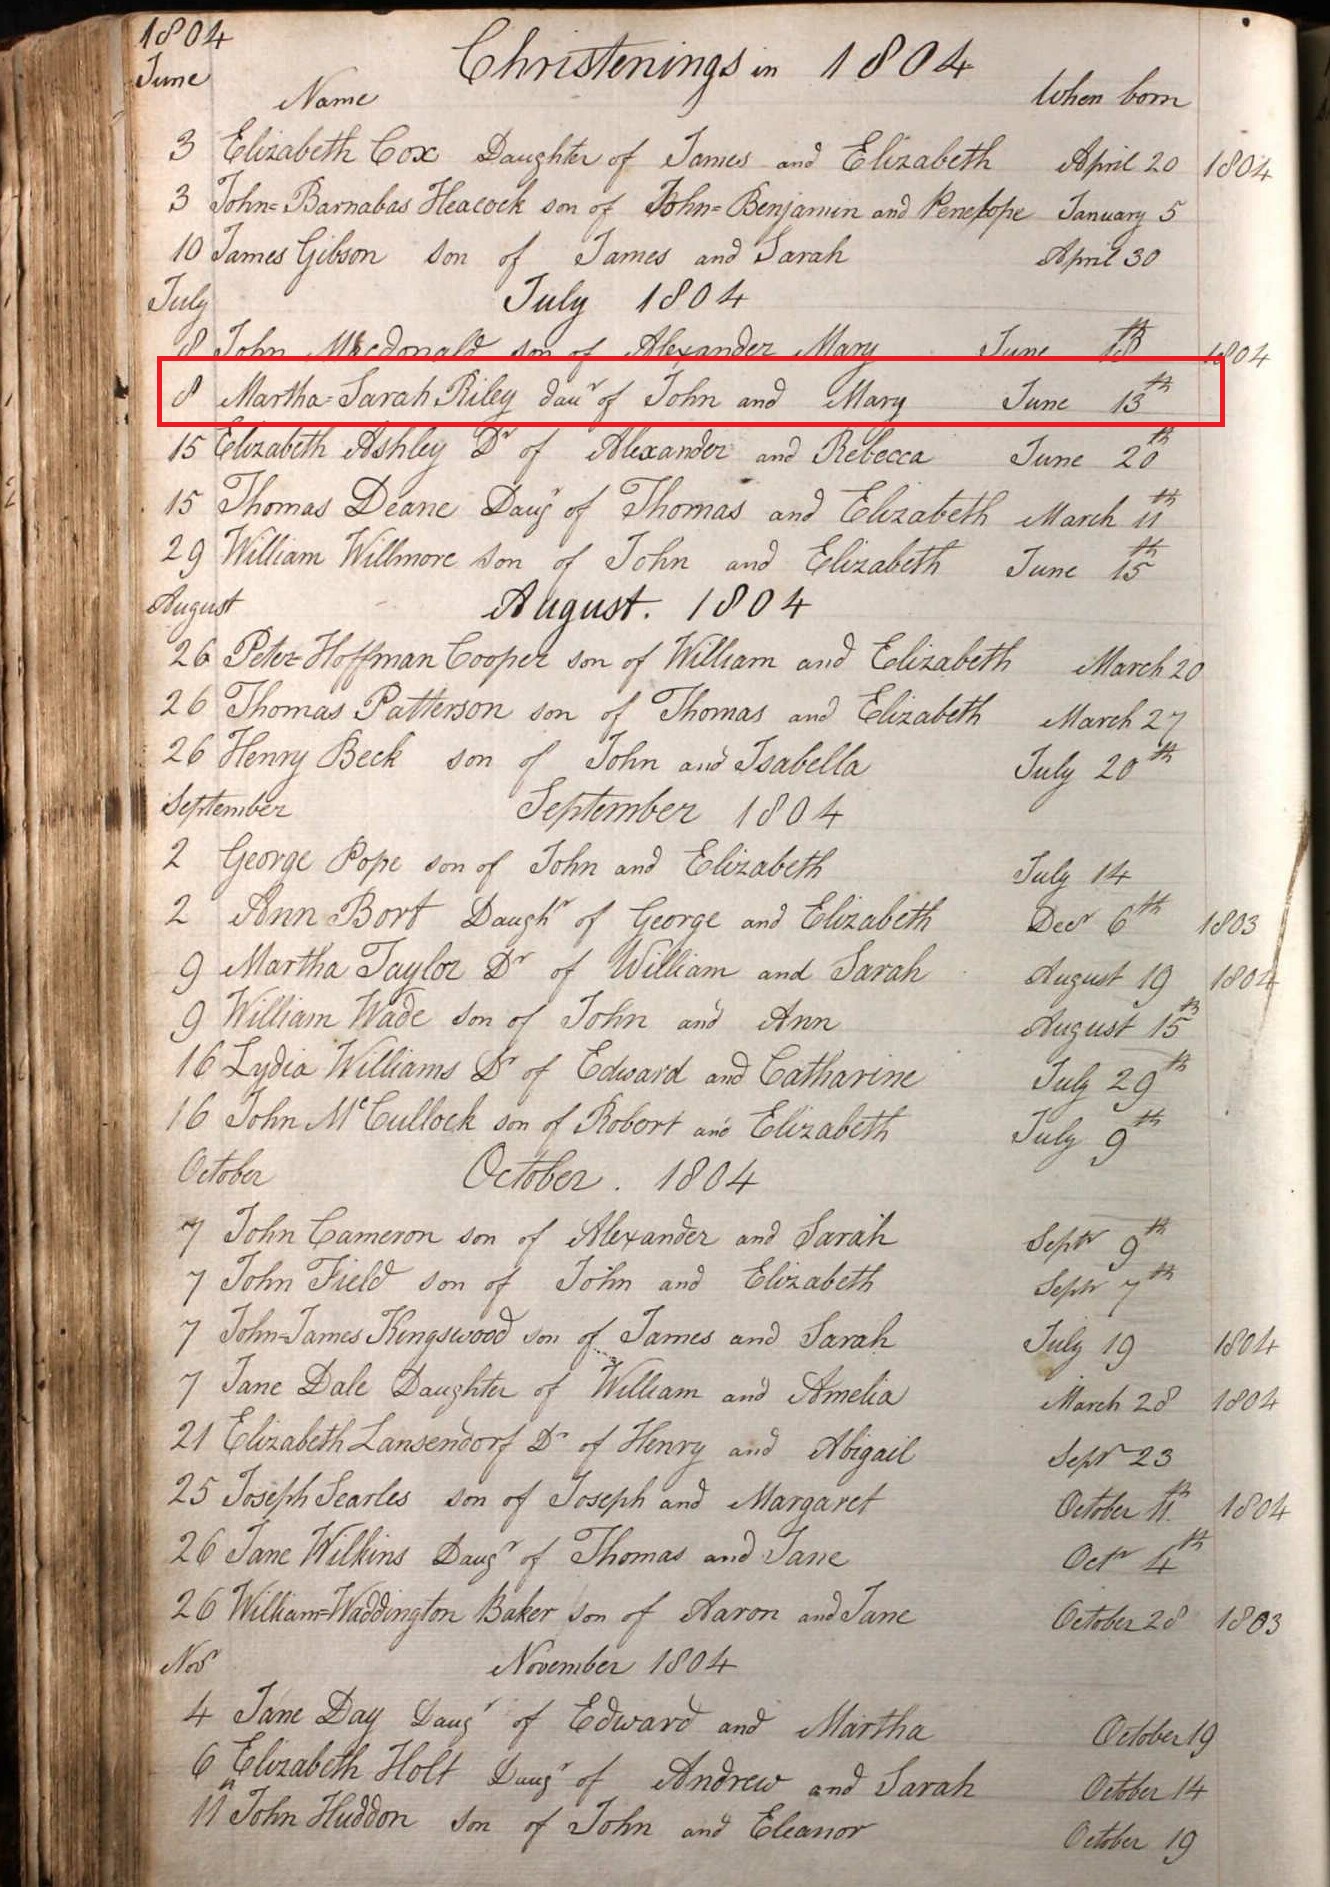 1804
Christenings in 1804
June
Name When born
3 Elizabeth Cox Daughter of James and Elizabeth April 20 1804
3 John=Barnabas Heacock son of John=Benjamin and Penelope January 5
10 James Gibson son of James and Sarah April 30
July July 1804
8 John Macdonald son of Alexander Mary June 1804
8 Martha=Sarah Riley daur of John and Mary June 13th
15 Elizabeth Ashley Dr of Alexander and Rebecca June 20th
15 Thomas Deane Daugr of Thomas and Elizabeth March 11th
29 William Willmore son of John and Elizabeth June 15th
August August. 1804
26 Peter-Hoffman Cooper son of William and Elizabeth March 20
26 Thomas Patterson son of Thomas and Elizabeth March 27
26 Henry Beck son of John and Isabella July 20th
September September 1804
2 George Pope son of John and Elizabeth July 14
2 Ann Bort Daughr of George and Elizabeth Decr 6th 1803
9 Martha Taylor Dr of William and Sarah August 19 1804
9 William Wade son of John and Ann August 15th
16 Lydia Williams Dr of Edward and Catharine July 29th
16 John McCullock son of Robert and Elizabeth July 9th
October October. 1804
7 John Cameron son of Alexander and Sarah Septr 9th
7 John Field son of John and Elizabeth Septr 7th
7 John-James Kingswood son of James and Sarah July 19 1804
7 Jane Dale Daughter of William and Amelia March 28 1804
21 Elizabeth Lansendorf Dr of Henry and Abigail Septr 23
25 Joseph Searles son of Joseph and Margaret October 11th 1804
26 Jane Wilkins Daugr of Thomas and Jane Octr 4th
26 William=Waddington Baker son of Aaron and Jane October 28 1803
Novr November 1804
4 Jane Day Daugr of Edward and Martha October 19
6 Elizabeth Holt Daugr of Andrew and Sarah October 14
11 John Huddon son of John and Eleanor October 19